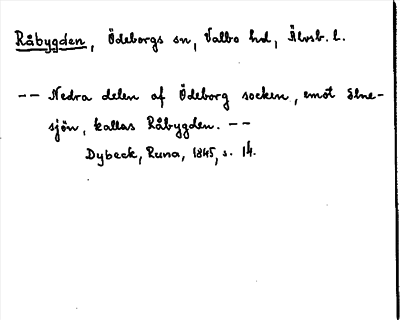 Råbygden, Ödeborgs sn, Valbo hd, Älvsb. l.
-- Nedra delen af Ödeborg socken, emot Elne-
sjön, kallas Råbygden. --
Dybeck, Runa, 1845, s. 14.